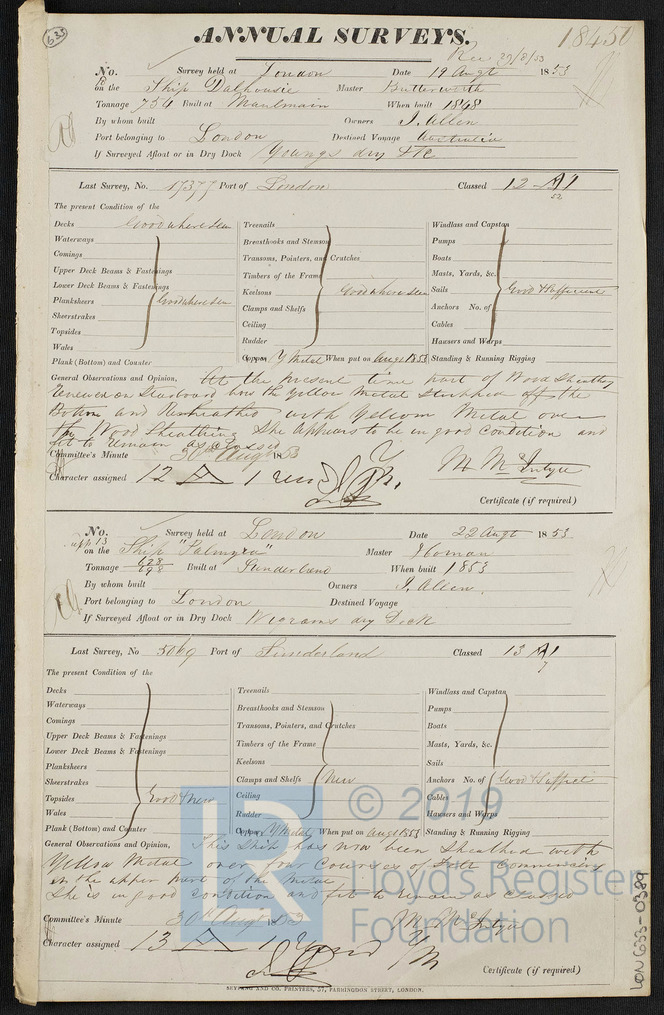 635
ANNUAL SURVEYS.
18450
Rec 29/8/53
No. Survey held at London Date 19 Augt 1853
on the Ship Dalhousie Master Butterworth
Tonnage 754 Built at Maulmain When built 1848
By whom built Owners J. Allen
Port belonging to London Destined Voyage Australia
If Surveyed Afloat or in Dry Dock Youngs dry
Last Survey, No. 17377 Port of London Classed 12 A1
52
The present Condition of the
Decks Good where seen Treenails Windlass and Capstan
Waterways Breasthooks and Stemson Pumps
Comings Transoms, Pointers, and Crutches Boats
Upper Deck Beams & Fastenings Timbers of the Frame Masts, Yards, &c.
Lower Deck Beams & Fastenings Keelsons Good where seen Sails Good & Sufficient
Planksheers Good where seen Clamps and Shelfs Anchors No. of
Sheerstrakes Ceiling Cables
Topsides Rudder Hawsers and Warps
Wales
Plank (Bottom) and Counter Copper Y Metal When put on Augt 1853 Standing & Running Rigging
General Observations and Opinion, At the present time part of Wood Sheathing
on Starboard bow the Yellow Metal stripped off the
Bottom and with Yellow Metal over
the Wood Sheathing She appears to be in good condition and
fit to remain as classed
Committee's Minute 30th Augt 1853
Character assigned 12 A 1 M McIntyre
Certificate (if required)
No. Survey held at London Date 22 Augt 1853.
on the Ship "Palmyra" Master
Tonnage Built at Sunderland When built 1853
By whom built Owners J. Allen.
Port belonging to London Destined Voyage
If Surveyed Afloat or in Dry Dock Wigrams dry Dock
Last Survey, No 5069 Port of Sunderland Classed 13 A1
7
The present Condition of the
Decks Treenails Windlass and Capstan
Waterways Breasthooks and Stemson Pumps
Comings Transoms, Pointers, and Crutches Boats
Upper Deck Beams & Fastenings Timbers of the Frame Masts, Yards, &c.
Lower Deck Beams & Fastenings Keelsons Sails
Planksheers Clamps and Shelfs New Anchors No. of Good & Sufficit
Sheerstrakes Ceiling Cables
Topsides Good & new Rudder Hawsers and Warps
Wales
Plank (Bottom) and Counter Copper Y Metal When put on Augt 1853 Standing & Running Rigging
General Observations and Opinion, This Ship has now been Sheathed with
Yellow Metal over four Courses of Felt Commencing
in the upper part of the Metal
She is in good condition and fit to remain as Classed
Committee's Minute 30 Augt 1853 M McIntyre
Character assigned 13 A 1
Certificate (if required)
SEYFANG AND CO. PRINTERS, 57, FARRINGDON STREET, LONDON.
LON 633-0389
LR
© 2019
Lloyds Register
Foundation